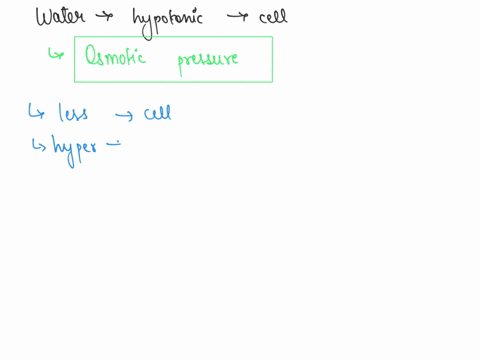 Water → hypotonic → cell
↳ Osmotic pressure
↳ less → cell
↳ hyper -